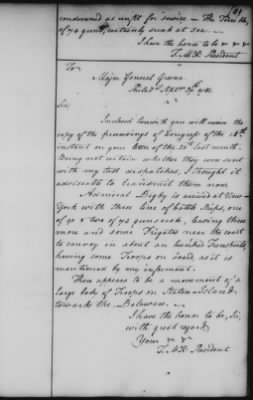 condemned as unfit for service — The Tenible,
of 74 guns, certainly sunk at sea. —
I have the honor to be &c &c &c
T. M.K. President
To
Major General Greene
Philad.a Sept.r 1781
Sir,
Inclosed herewith you will receive the
copy of the proceedings of Congress of the 18th
instant on your letter of the 25th last month.
Being not certain whether they were sent
with my last dispatches, I thought it
adviseable to transmit them now
Admiral Digby is arrived at New-
York with three line of battle ships, one
of 90 & two of 74 guns each, leaving three
more and some Frigates near the coast
to convoy in about an hundred Transports,
having some Troops on board, as it is
mentioned by my informant.
There appears to be a movement of a
large body of Troops on Staten-Island
towards the Delaware. —
I have the honor to be, Sir,
with great regard
Your &c &c
T. M.K. President